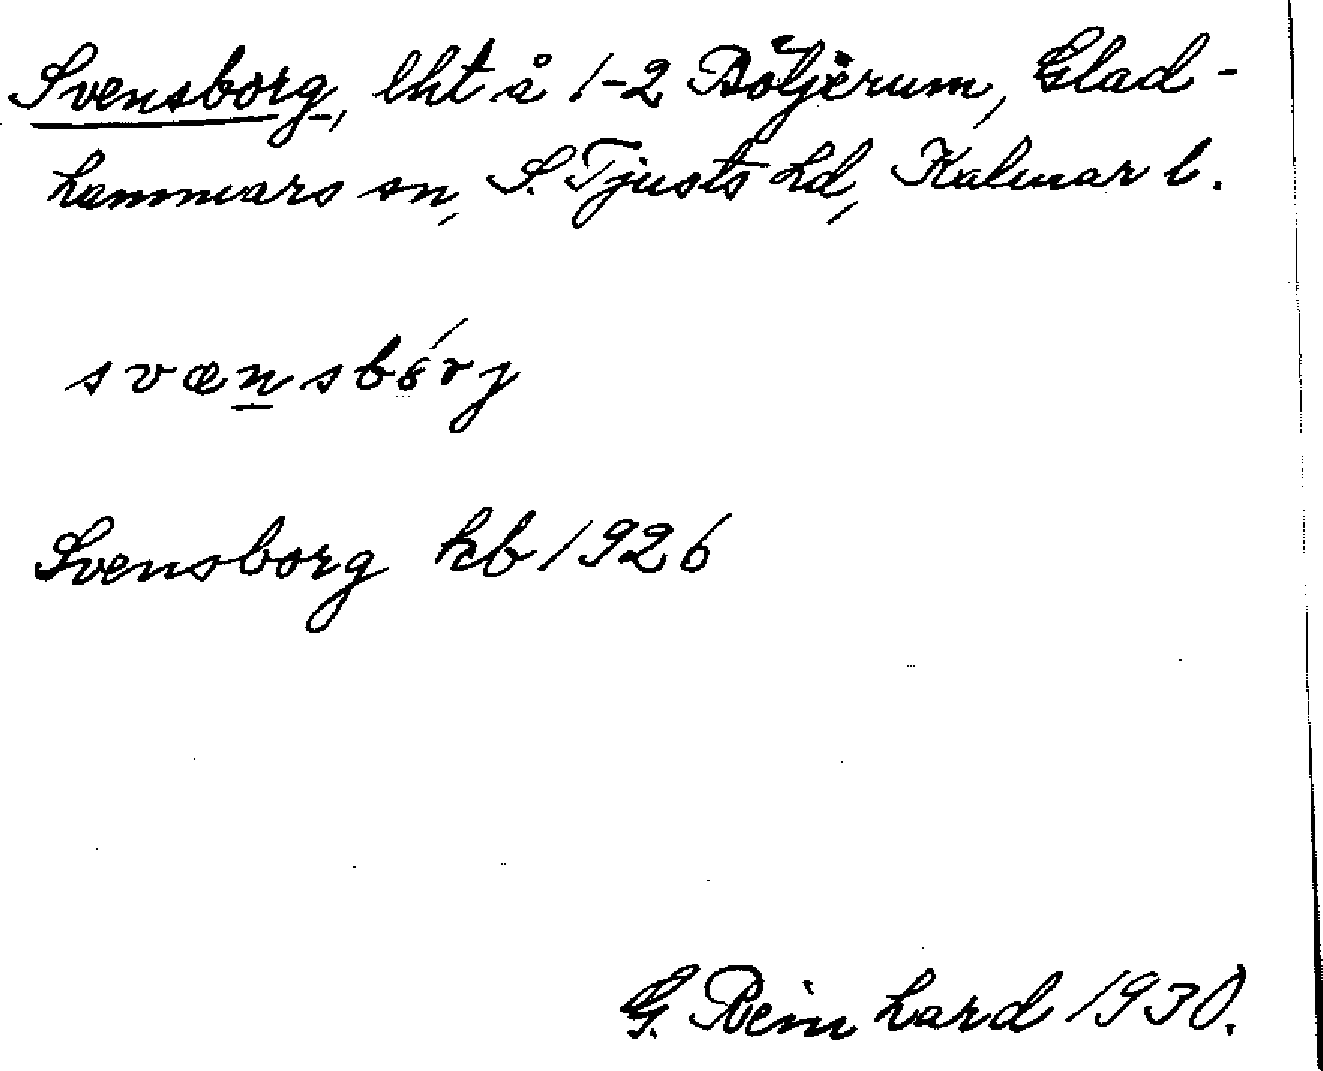 Svensborg, lht å 1-2 Böljerum, Glad-
hammars sn, S. Tjusts hd, Kalmar l.
svænsbórj
Svensborg kb 1926
G. Reinhard 1930.